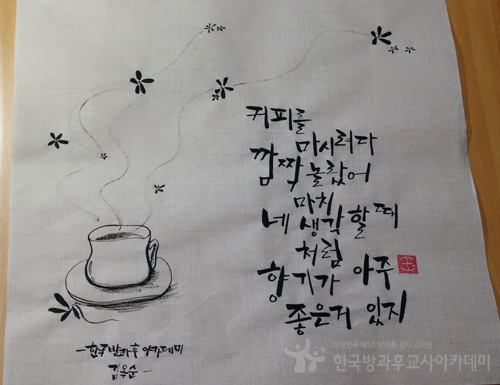 커피를
마시려다
깜짝 놀랐어
마치
네 생각할 때
처럼
향기가 아주
좋은거 있지
-한국방과후 아카데미
김옥순-
대한민국 NO.1 방과후 강사 교육원
한국방과후교사아카데미